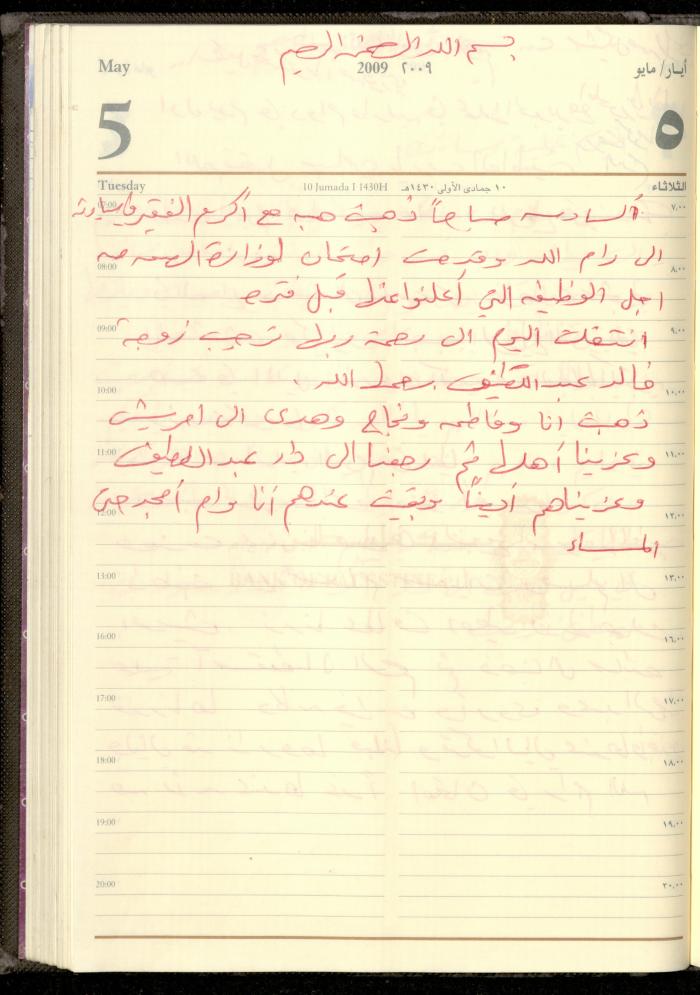 بسم الله الرحمن الرحيم
May 2009 ٢٠٠٩ أيار/ مايو
5 ٥
Tuesday 10 Jumada I 1430H ١٠ جمادى الأولى ١٤٣٠هـ الثلاثاء
07:00 ٧,٠٠
السادسه صباحاً ذهبت هبه مع اكرم الفقير
الى رام الله وقدمت امتحان لوزارة الصحه من
08:00 ٨,٠٠
اجل الوظيفه التي أعلنوا عنها قبل فتره
09:00 ٩,٠٠
انتقلت اليوم الى رحمة ربها زوجة
خالد عبد اللطيف رحمها الله.
10:00 ١٠,٠٠
ذهبت انا وفاطمه ونجاح وهدى الى امريش
11:00 ١١,٠٠
وعزينا أهلها ثم رجعنا الى دار عبد اللطيف
وعزيناهم أيضاً وبقيت عندهم أنا وام أمجد حتى
12:00 ١٢,٠٠
المساء
13:00 ١٣,٠٠
16:00 ١٦,٠٠
17:00 ١٧,٠٠
18:00 ١٨,٠٠
19:00 ١٩,٠٠
20:00 ٢٠,٠٠